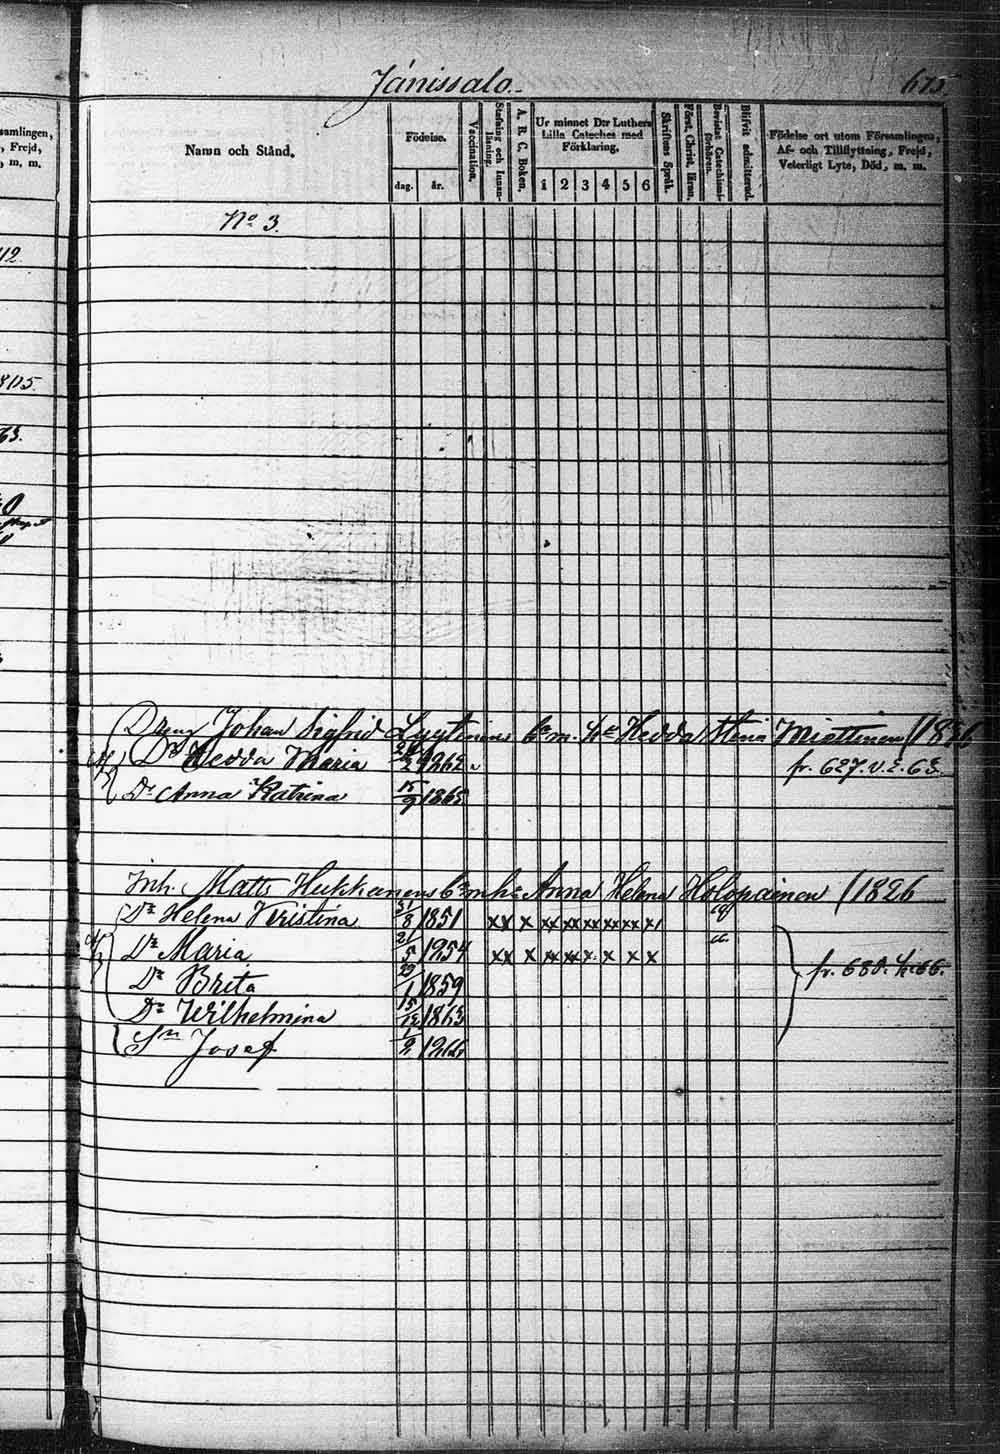 Jänissalo.
675
samlingen,
, Frejd,
, m. m.
Namn och Stånd.
Födelse.
dag.
år.
Vaccination.
Stafning och Innan-läsning.
A. B. C. Boken.
Ur minnet D:r Luthers
Lilla Cateches med
Förklaring.
1 2 3 4 5 6
Skriftens Språk.
Först. Christ. läran.
Bevistat Catechismi-förhören.
Blifvit admitterad.
Födelse ort utom Församlingen,
Af- och Tillflyttning, Frejd,
Veterligt Lyte, Död, m. m.
No 3.
12.
805.
63.
Dreng Johan Sigfrid Lyytinens Hedda Stina Miettinen
Dr Hedda Maria 1862 fr. 627. v. 2. 63.
Dr Anna Katrina 15/9 1865
Inh. Matts Hukkanens Anna Helena Holopainen /1826
Dr Helena Kristina 31/8 1851 xx x xx xx xx xx x
Dr Maria 21/5 1854 xx x xx xx x x x x
fr. 680.
Dr Brita 29/1 1859
Dr Wilhelmina 15/12 1863
Sn Josef 1/2 1866